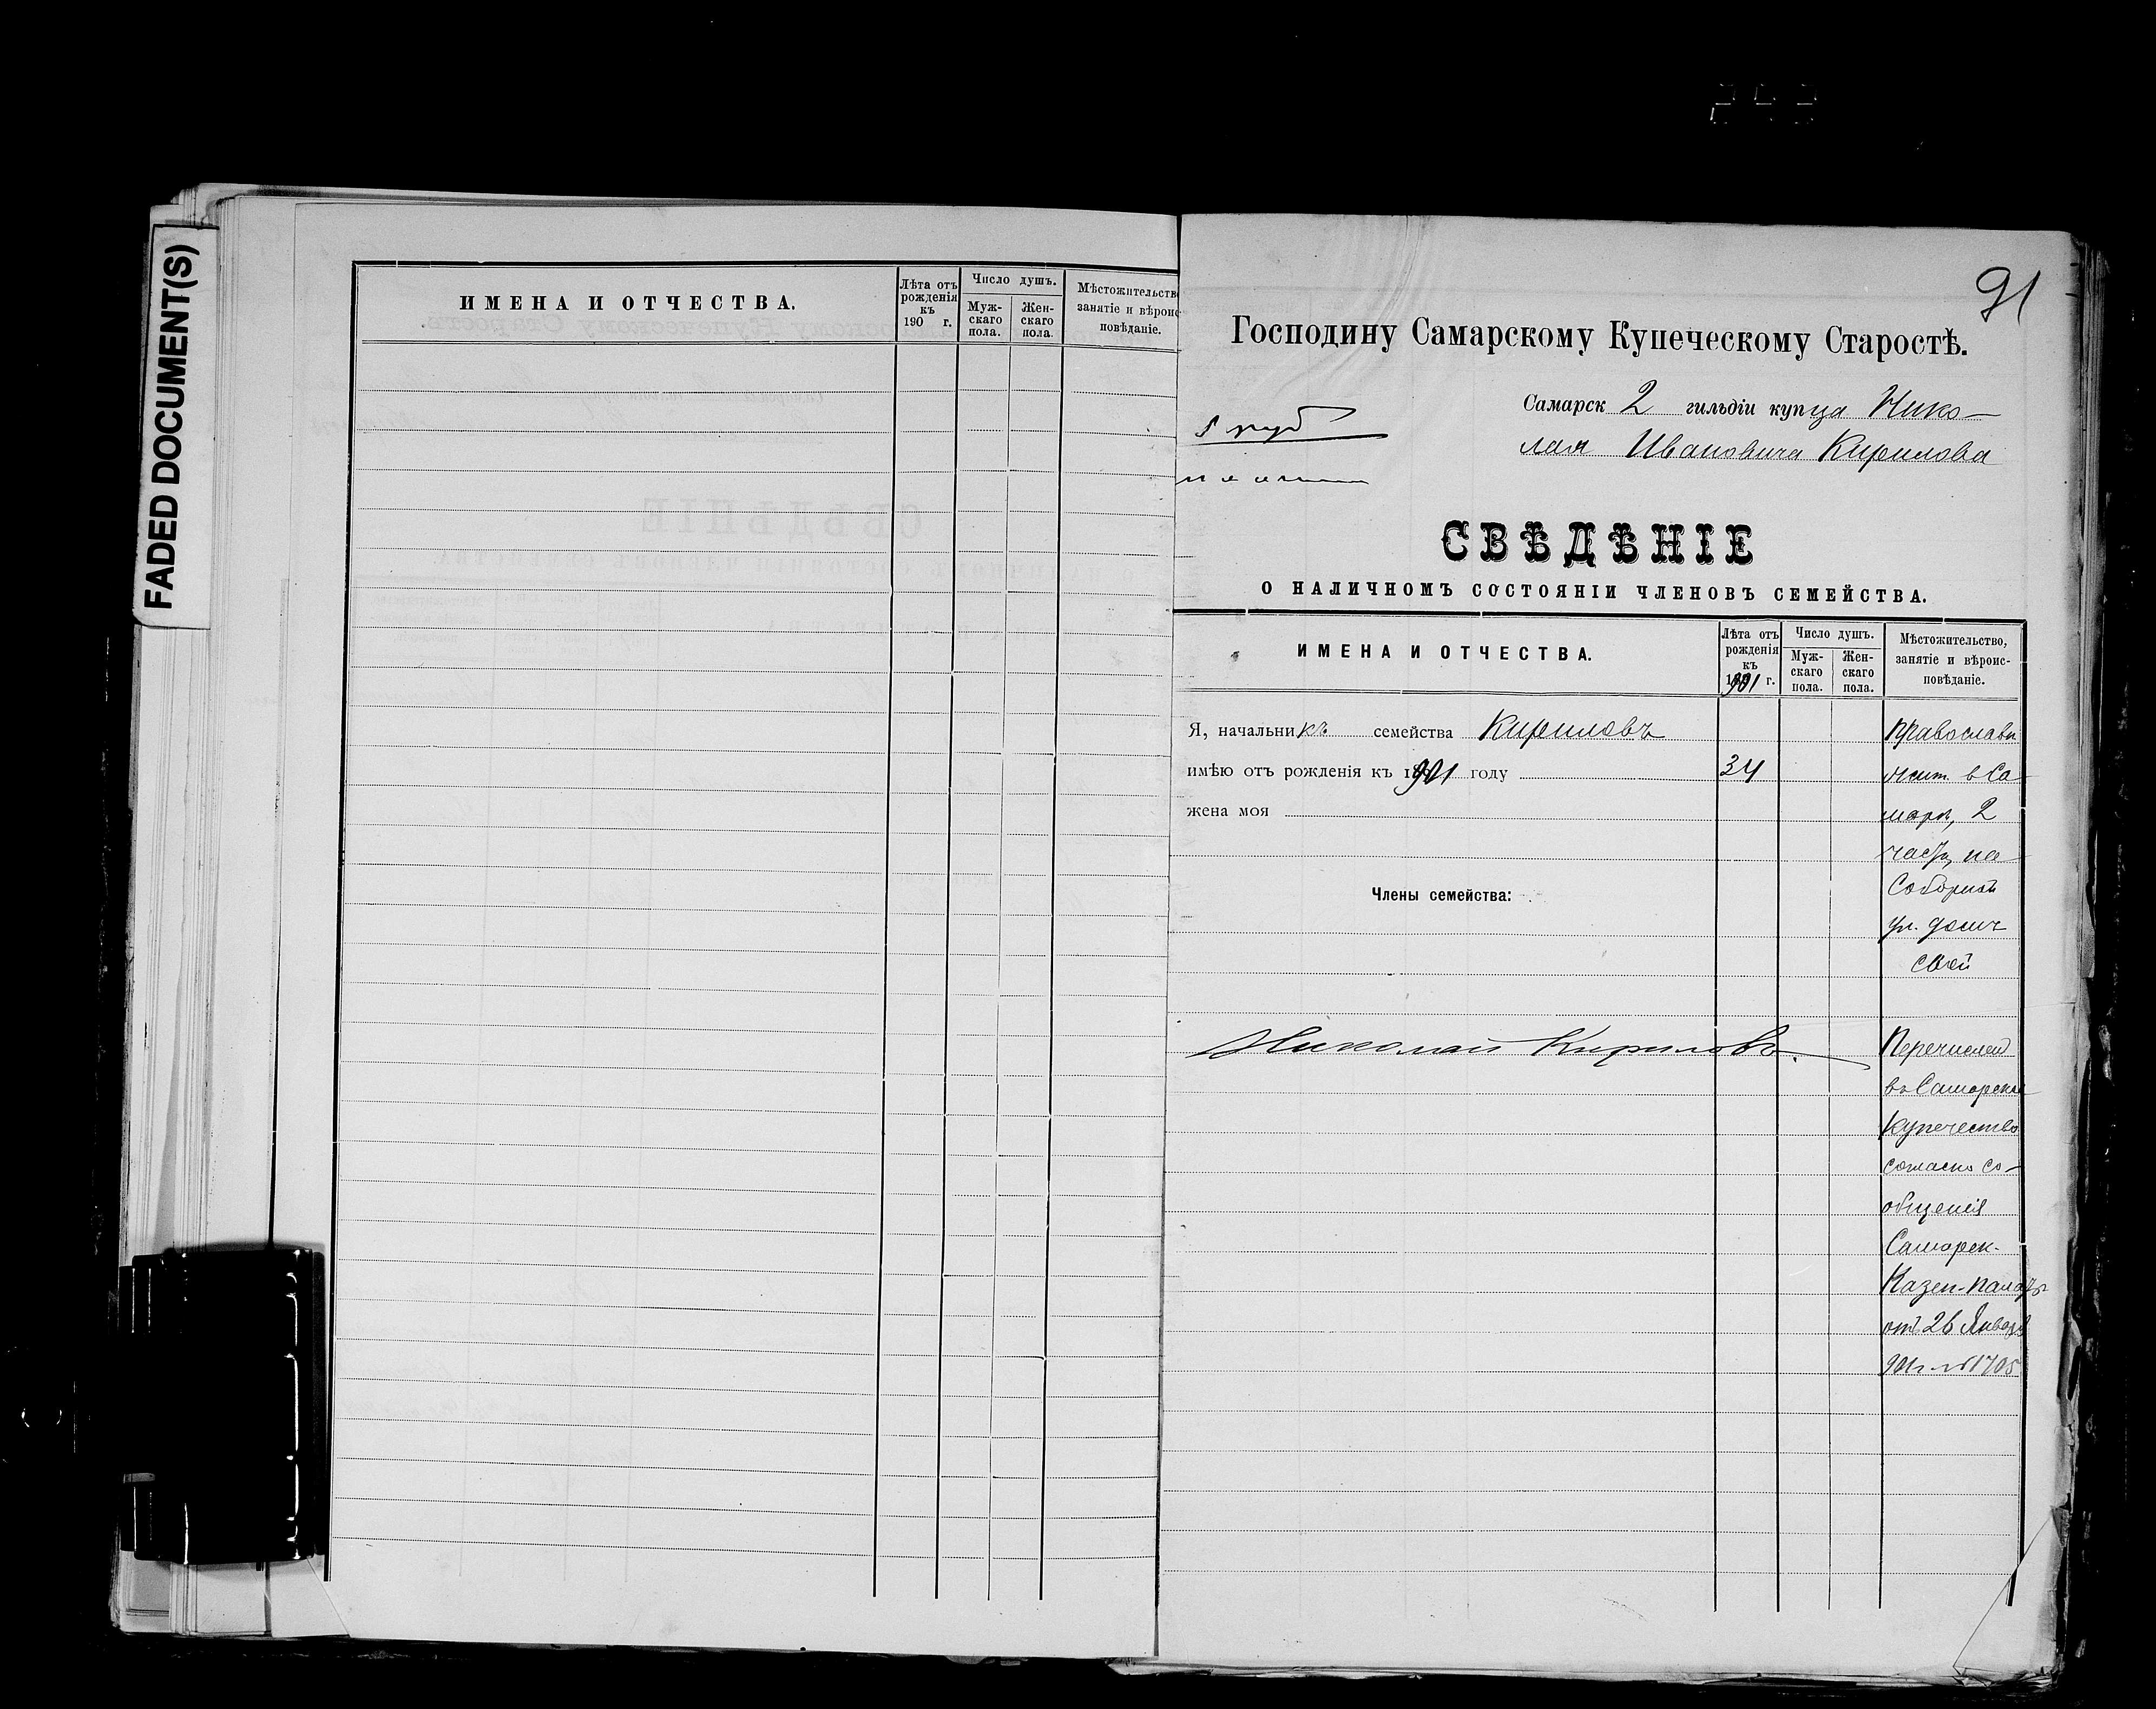 FADED DOCUMENT(S)
ИМЕНА И ОТЧЕСТВА.
Лѣта отъ рожденія къ 190 г.
Число душъ.
Муж- скаго пола.
Жен- скаго пола.
Мѣстожительств
занятіе и вѣроис
повѣданіе.
91
Господину Самарскому Купеческому Старостѣ.
Самарск 2 гильдіи купца Нико-
лая Ивановича Кирилова
5 руб
СВѢДѢНІЕ
О НАЛИЧНОМЪ СОСТОЯНІИ ЧЛЕНОВЪ СЕМЕЙСТВА.
ИМЕНА И ОТЧЕСТВА.
Лѣта отъ рожденія къ 1901 г.
Число душъ.
Муж- скаго пола.
Жен- скаго пола.
Мѣстожительство,
занятіе и вѣроис-
повѣданіе.
Я, начальникъ семейства Кириловъ
Православн
имѣю отъ рожденія къ 1901 году 34
жит. в Са-
жена моя
мар, 2
части, на
Члены семейства:
Соборной
ул. домъ
свой
Николай Кириловъ.
Перечислен
въ Самарское
Купечество
согласно со-
общенія
Самарск.
Казен. палаты
отъ 26 Января
901 г. № 1705